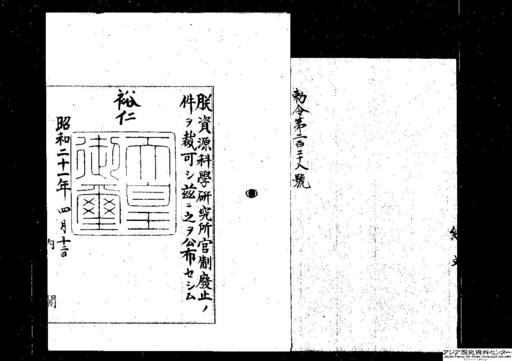 勅令第二百二十八號
朕資源科學研究所官制廢止ノ
件ヲ裁可シ茲ニ之ヲ公布セシム
裕仁
天皇御璽
昭和二十一年四月
内閣
アジア歴史資料センター